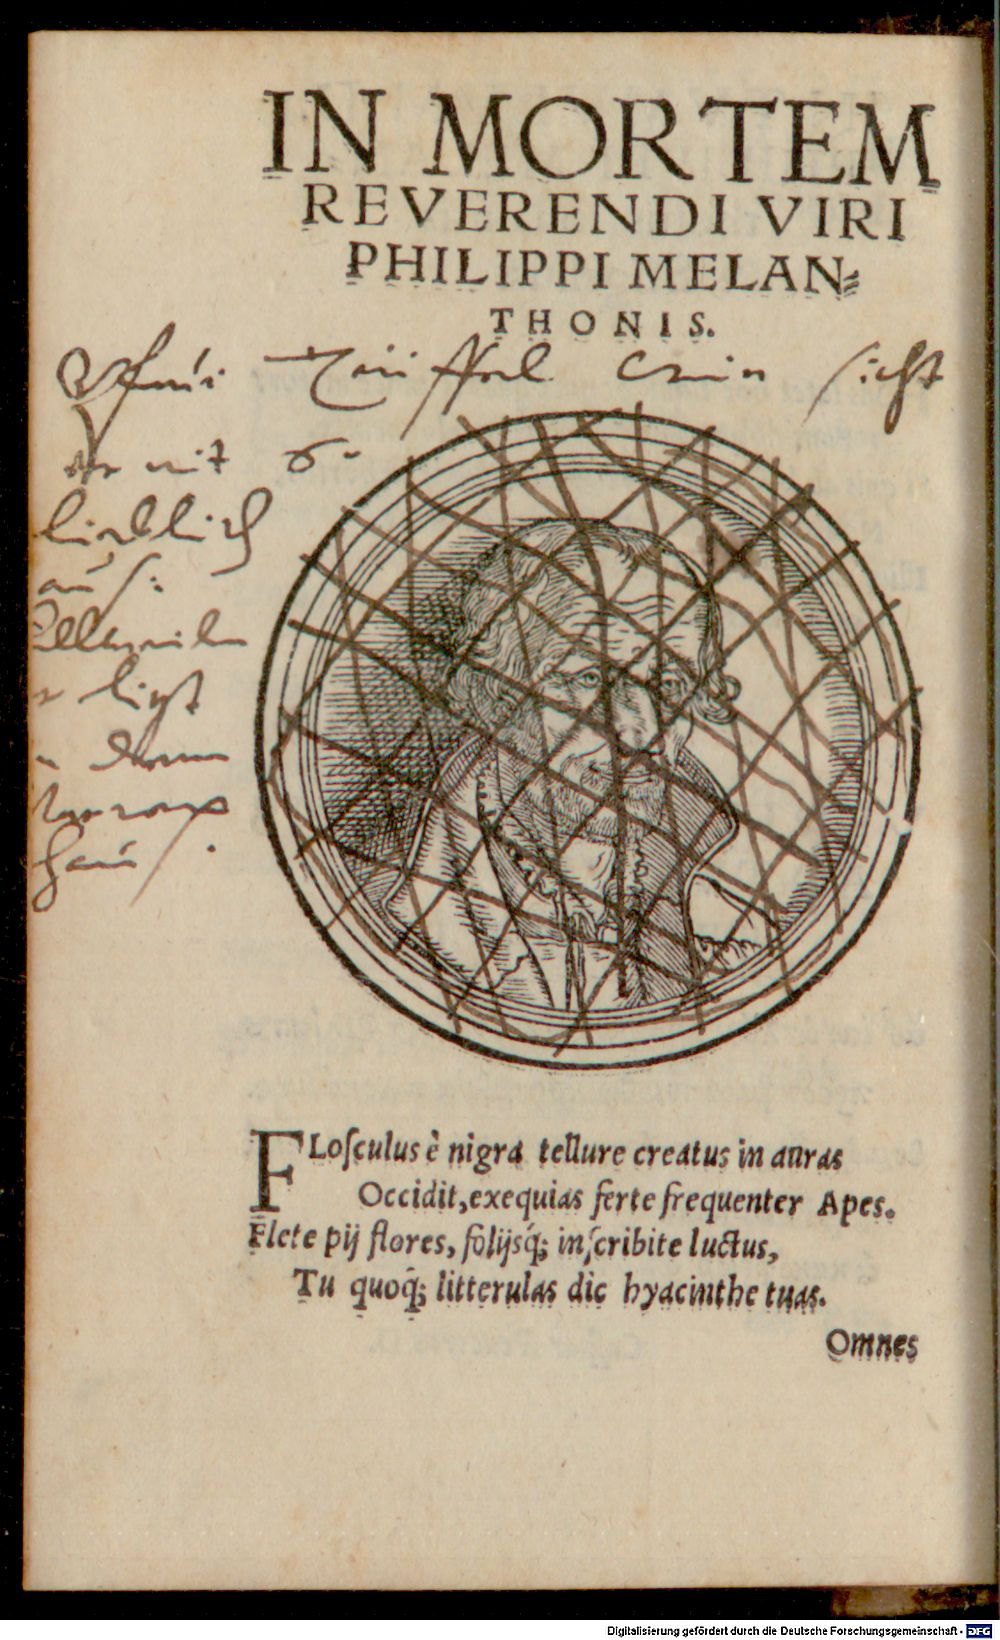 IN MORTEM
REVERENDI VIRI
PHILIPPI MELAN⸗
THONIS.
Pfui Teüffel wie sicht
er nit so
lieblich
aus:
ligt
haus.
FLoſculus è nigra tellure creatus in auras
Occidit, exequias ferte frequenter Apes.
Flete pij flores, folijsq́; inſcribite luctus,
Tu quoq́; litterulas dic hyacinthe tuas.
Omnes
Digitalisierung gefördert durch die Deutsche Forschungsgemeinschaft - DFG